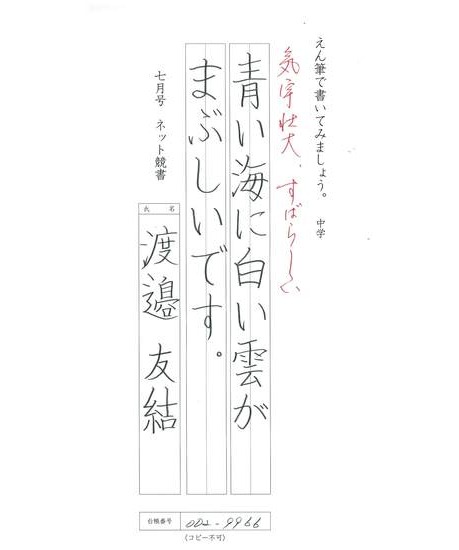 えん筆で書いてみましょう。 中学
気宇壮大、すばらしい
青い海に白い雲が
まぶしいです。
七月号 ネット競書
氏名
渡邉友結
台帳番号 002-9966
(コピー不可)